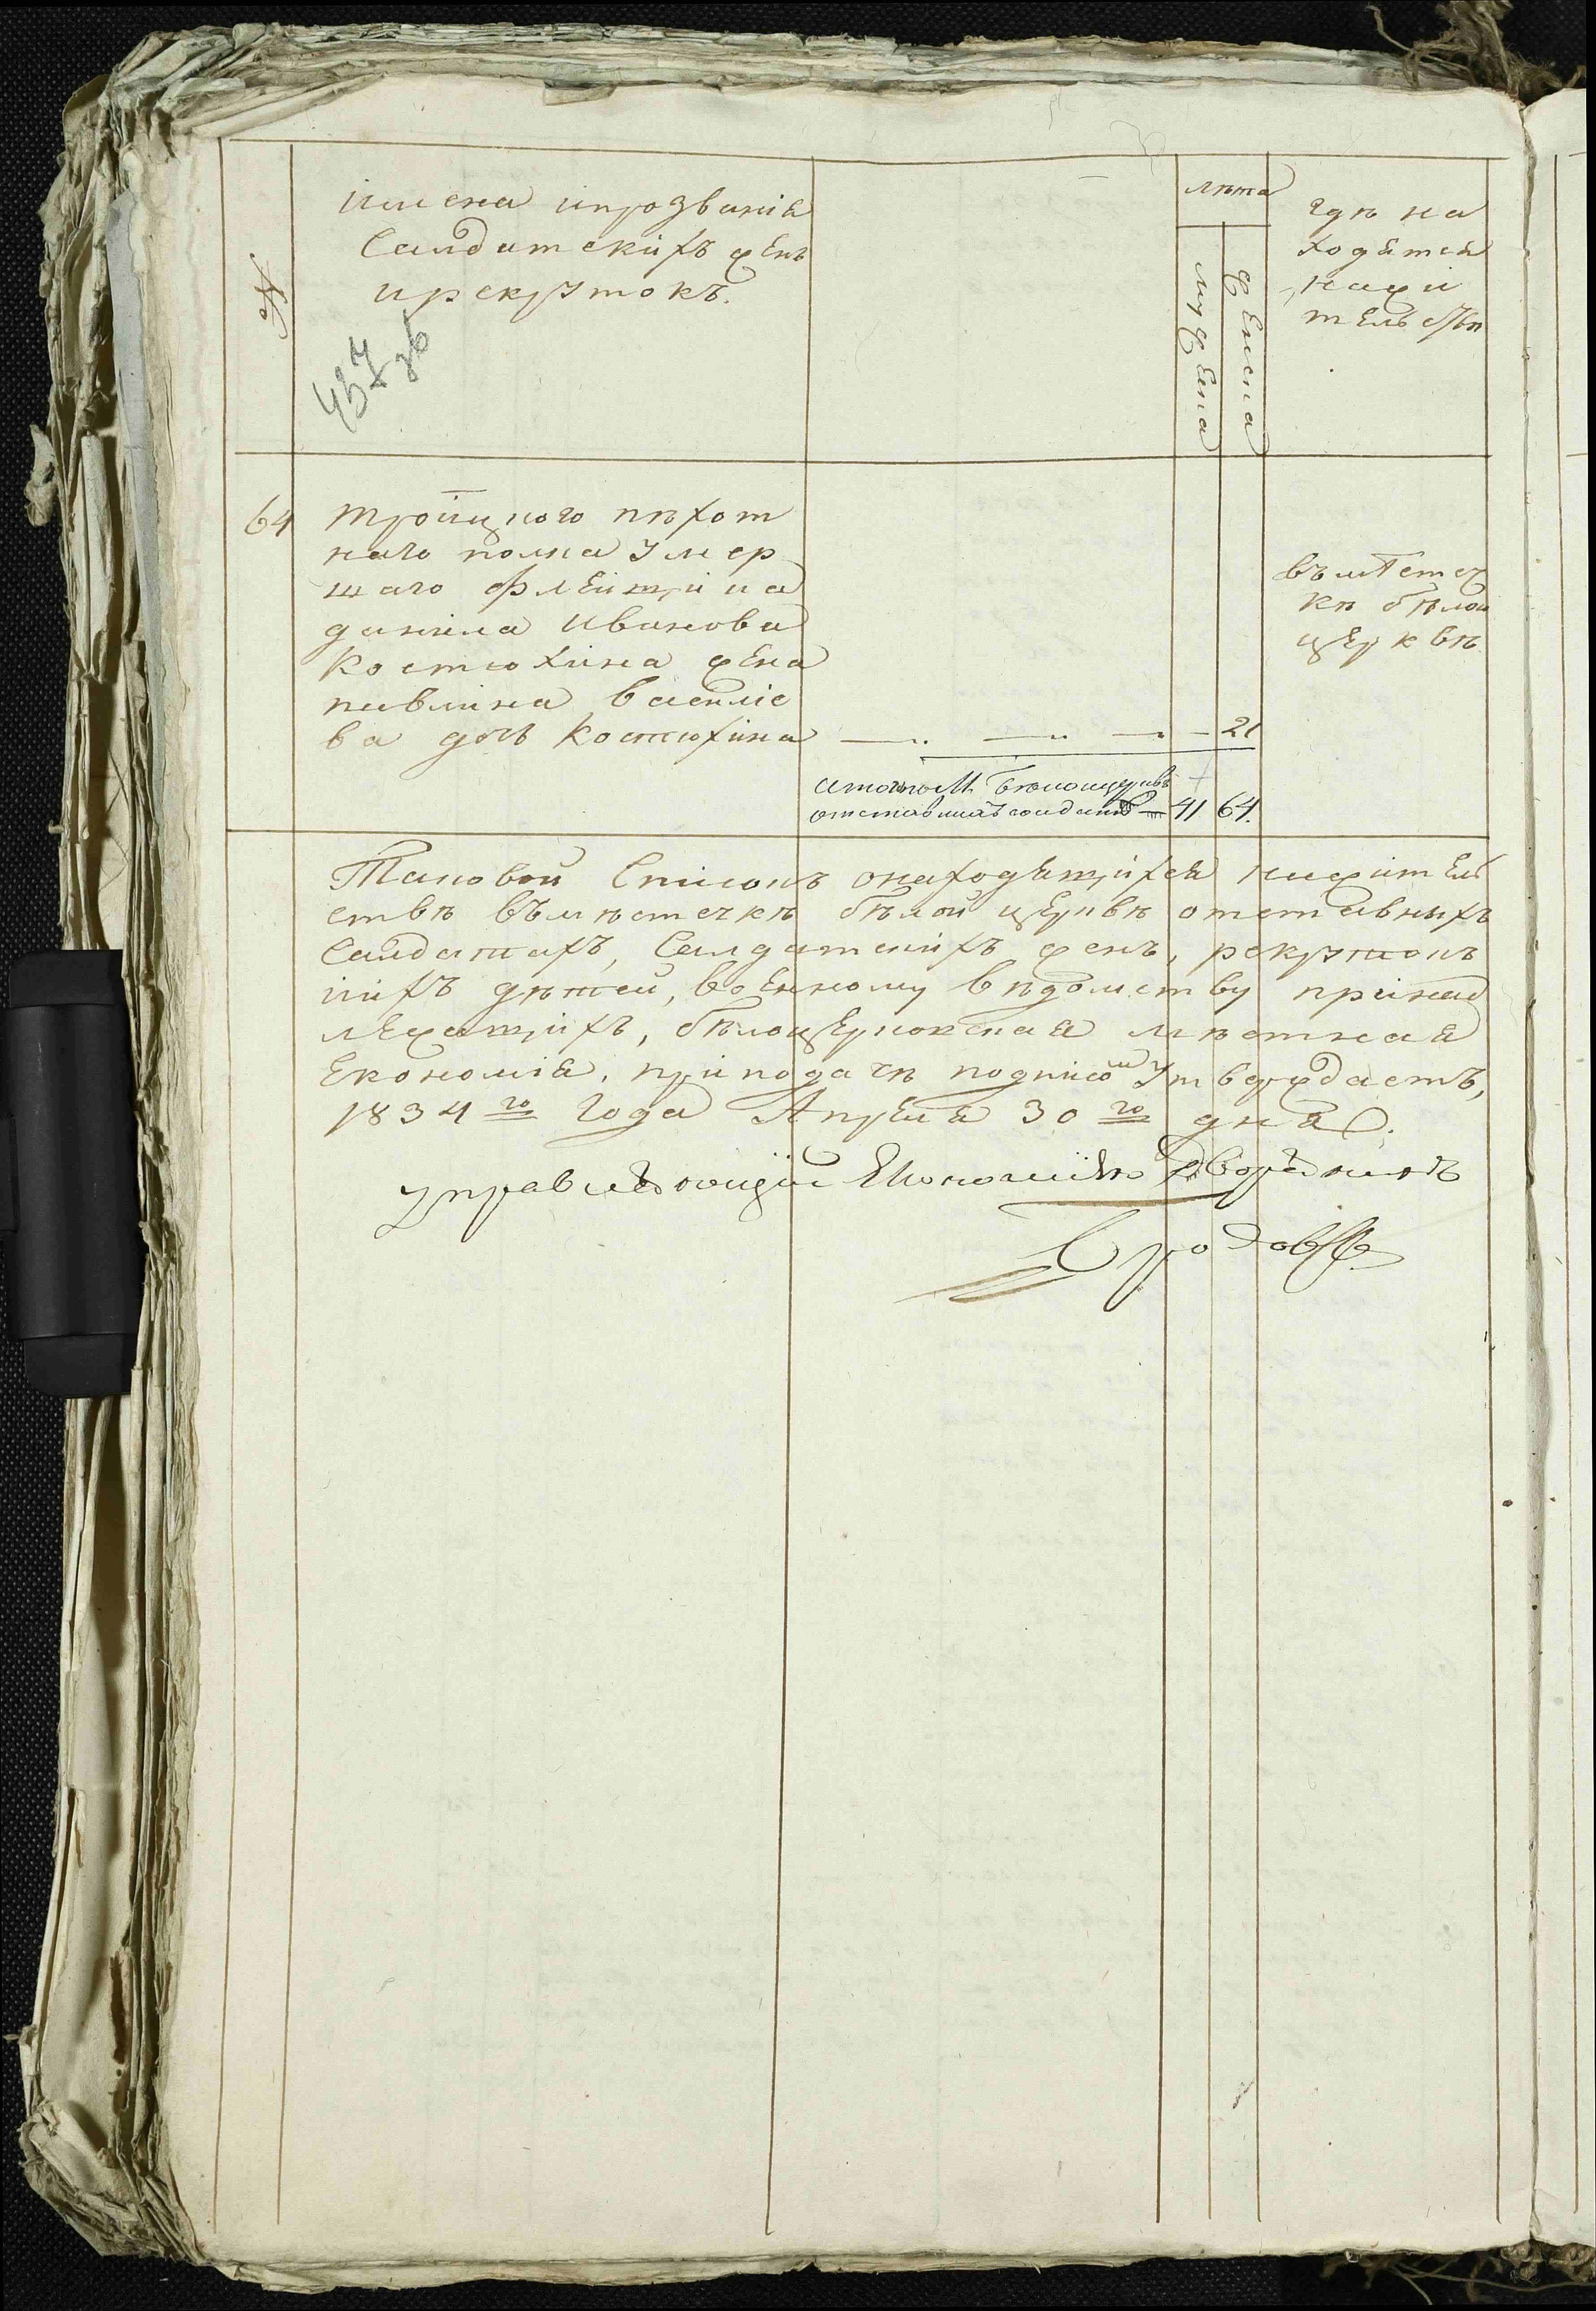 №
имена ипрозванія
Салдатскихъ женъ
ирекрутокъ.
лѣта
мужеска
женска
гдѣ на
ходятся
нажи
тельствѣ
437 об
64
Тройцкого пѣхот
наго полка умер
шаго флейщика
данила Иванова
Костюхина жена
павлина василіе
ва дочь Костюхина — — — — 21
въмѣстеч
кѣ бѣлой
церквѣ
Итого по М. Бѣлоцерквѣ
отставныхъ солдатъ — 41 64.
Таковой Списокъ онаходящихся нажитель
ствѣ въмѣстечкѣ бѣлой церквѣ отставныхъ
Салдатахъ, Салдатскихъ женъ, рекрутокъ
иихъ дѣтей, военному вѣдомству принад
лежащихъ, бѣлоцерковская мѣстная
Економія, приподачѣ подписом утверждаетъ,
1834го Года Апреля 30го дня.
управляющій Економіею Дворянинъ